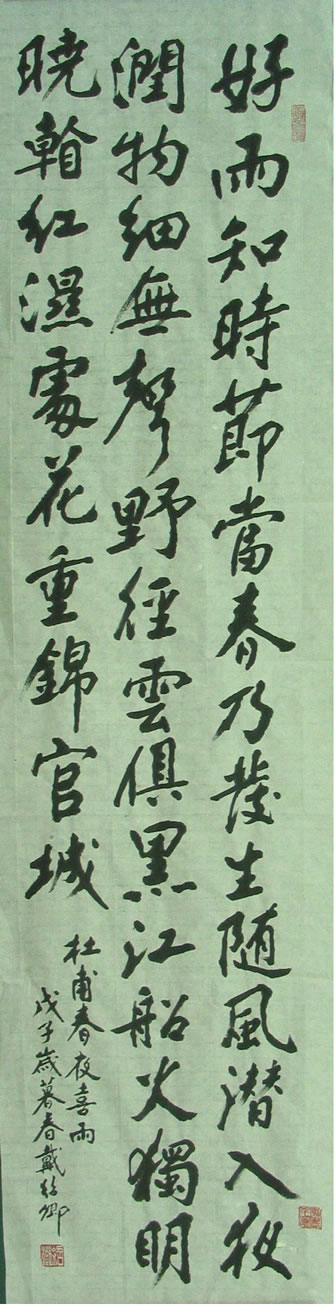 好雨知時節當春乃發生随風潜入夜
潤物細無聲野徑雲俱黑江船火獨明
曉看紅濕處花重錦官城
杜甫春夜喜雨
戊子歲暮春戴卿